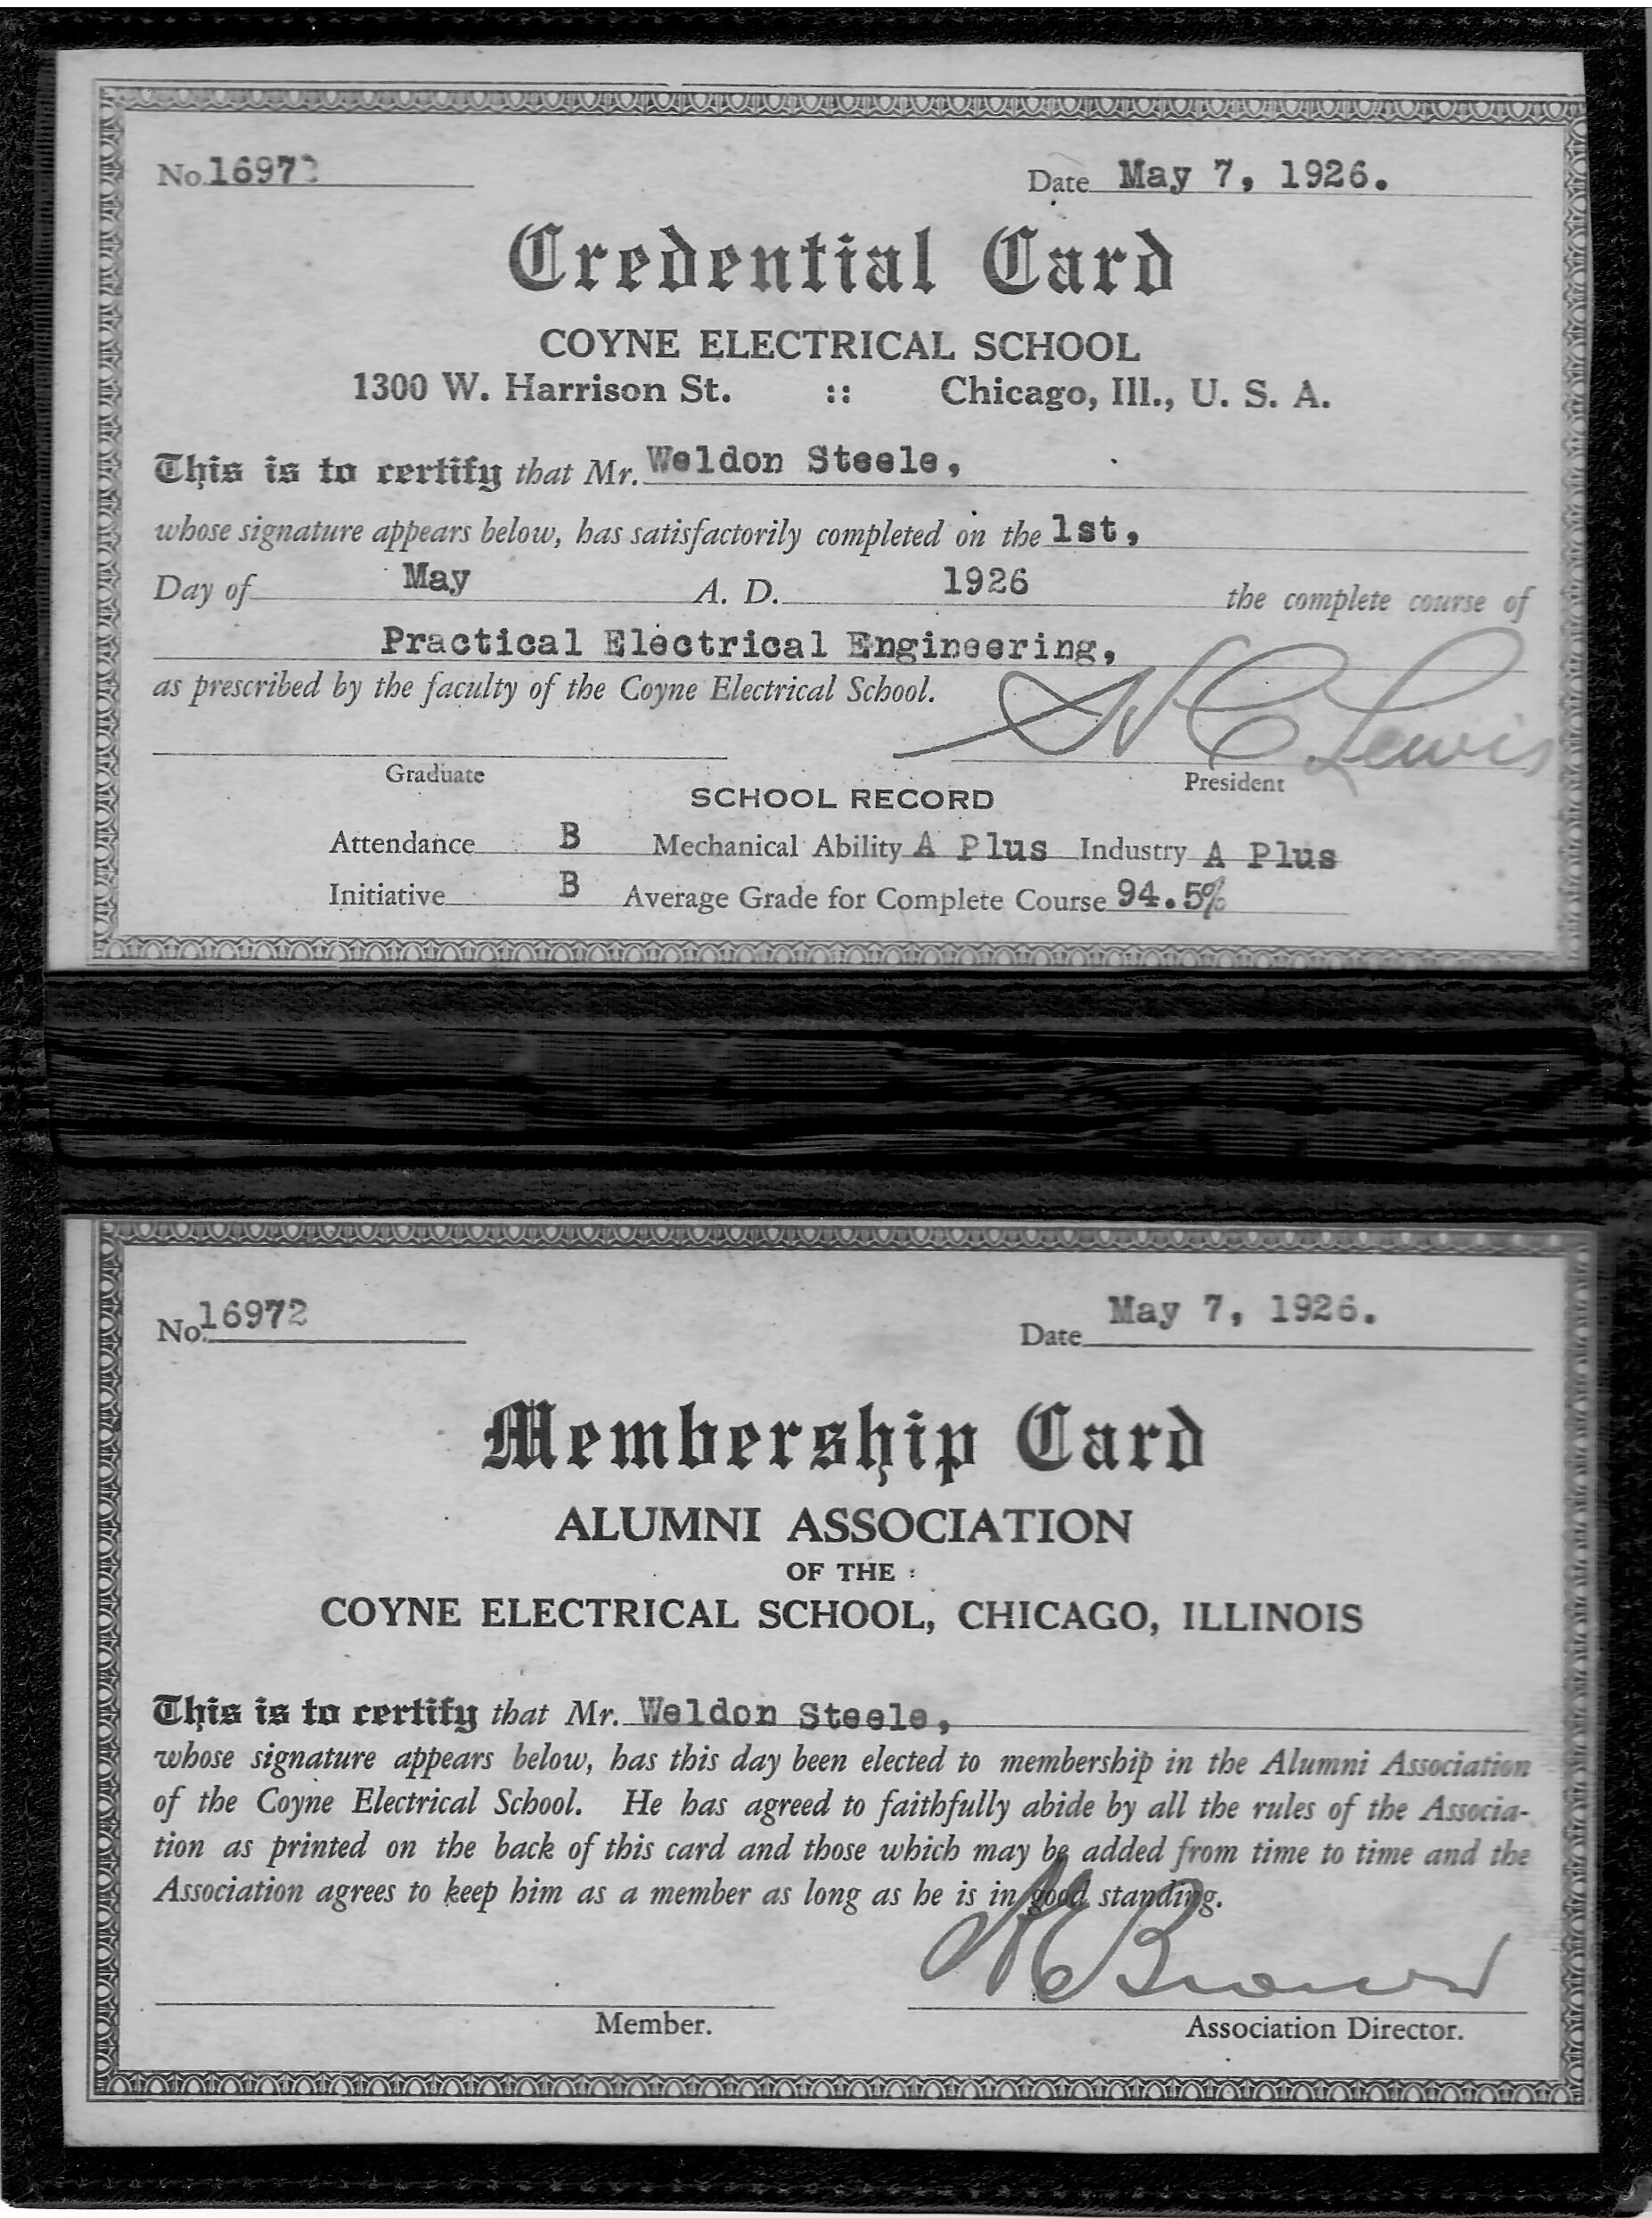 No. 16972 Date May 7, 1926.
Credential Card
COYNE ELECTRICAL SCHOOL
1300 W. Harrison St. :: Chicago, Ill., U. S. A.
This is to certify that Mr. Weldon Steele,
whose signature appears below, has satisfactorily completed on the 1st,
Day of May A. D. 1926 the complete course of
Practical Electrical Engineering,
as prescribed by the faculty of the Coyne Electrical School.
H C Lewis
Graduate President
SCHOOL RECORD
Attendance B Mechanical Ability A Plus Industry A Plus
Initiative B Average Grade for Complete Course 94.5%
No. 16972 Date May 7, 1926.
Membership Card
ALUMNI ASSOCIATION
OF THE
COYNE ELECTRICAL SCHOOL, CHICAGO, ILLINOIS
This is to certify that Mr. Weldon Steele,
whose signature appears below, has this day been elected to membership in the Alumni Association
of the Coyne Electrical School. He has agreed to faithfully abide by all the rules of the Associa-
tion as printed on the back of this card and those which may be added from time to time and the
Association agrees to keep him as a member as long as he is in good standing.
Brown
Member. Association Director.